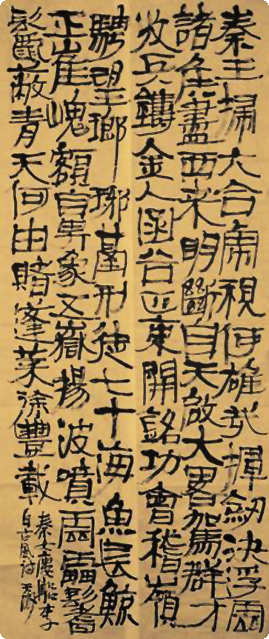 秦王掃六合虎視何雄哉揮劍決浮雲
諸侯盡西來明斷自天啟大略駕群才
收兵鑄金人函谷正東開銘功會稽嶺
騁望瑯琊臺刑徒七十海魚長鯨
正崔嵬額鼻象五嶽揚波噴雲雷鬐
鬣蔽青天何由睹蓬萊徐豐載
秦 李
白古風詩